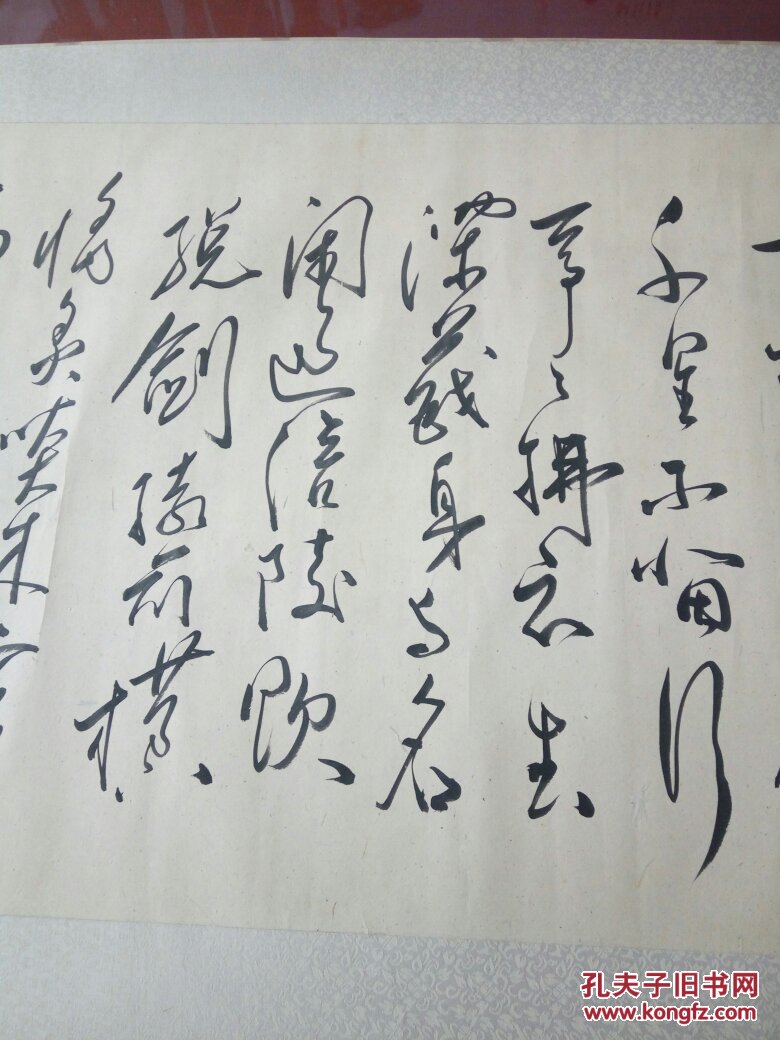 千里不留行
事了拂衣去
深藏身与名
閑過信陵飲
脫劍膝前橫
將炙啖朱亥
孔夫子旧书网
www.kongfz.com